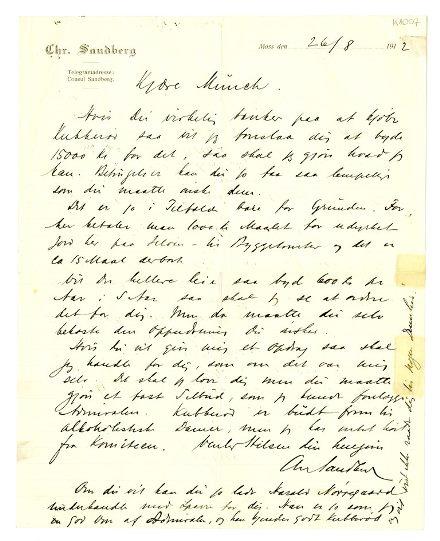 K 1007
Chr. Sandberg
Telegramadresse:
Consul Sandberg.
Moss den 26/8 1912
Kjære Munch.
Hvis du virkelig tænker paa at kjøbe
Kubberød saa vil jeg foreslaa dig at byde
15000 kr. for det, saa skal jeg gjøre hvad jeg
kan. Betingelser kan du jo faa saa lempelige
som du maatte ønske dem.
Det er jo i Tilfælde bare for Grunden. For
her betaler man 1000 kr Maalet for udyrket
Jord her paa Jeløen - til Byggetomter og det er
ca 15 Maal derbort.
Vil du hellere leie saa byd 600 kr pr
Aar i 5 Aar saa skal jeg se at ordne
det for dig. Men da maatte du selv
bekoste den Oppudsning du ønsker.
Hvis du vil give mig et Opdrag saa skal
jeg handle for dig, som om det var mig
selv. Det skal jeg love dig men du maatte
gjøre et fast Tilbud, som jeg kunde forelægge
Admiralen. Kubberød er budt frem til
alkoholistiske Damer, men jeg har intet hørt
fra Komiteen. Venlig Hilsen din hengivne
Chr Sandberg
Om du vil kan du jo lade Harald Nørregaard
underhandle med Eieren for dig. Han er jo som jeg
en god Ven af Admiralen, og han kjender godt Kubberød